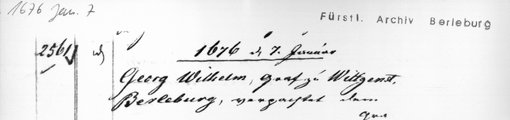 1676 Jan. 7
Fürstl. Archiv Berleburg
2561
1676 d 7. Januar
Georg Wilhelm, Graf zu Wittgenst.
Berleburg, verpachtet dem